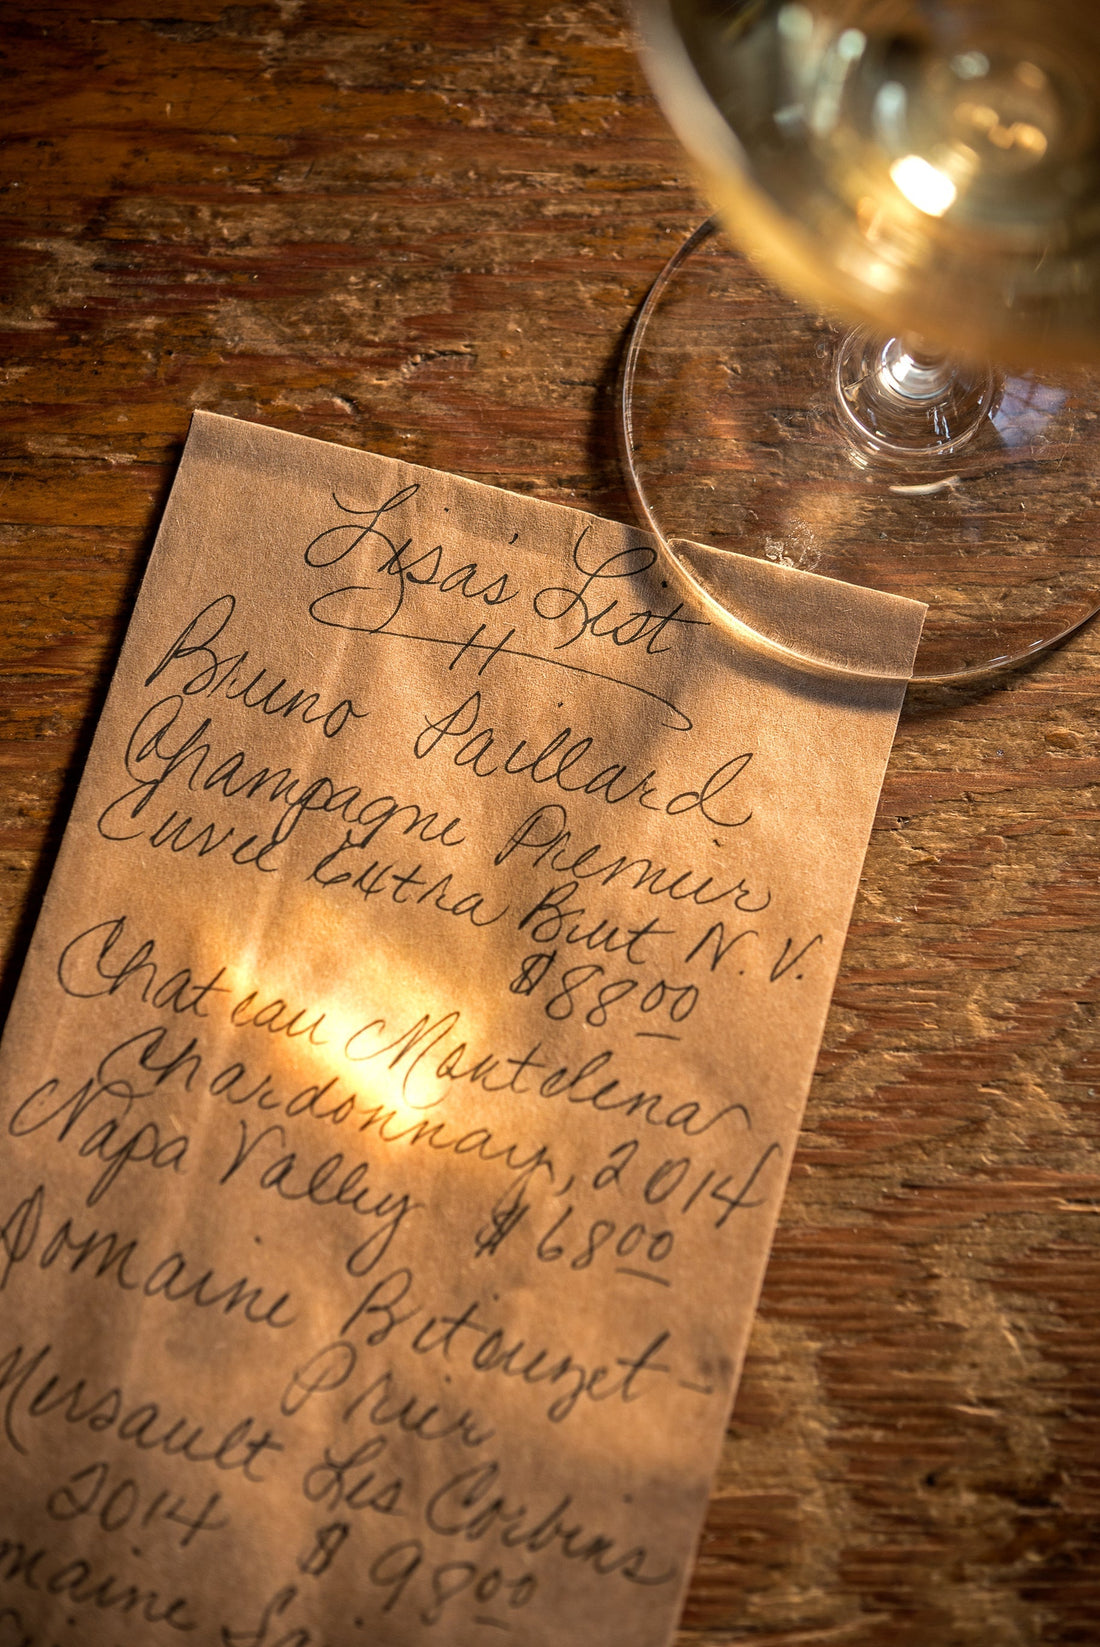 Lisa's List
Bruno Paillard
Champagne Premier
Cuvee Extra Brut N.V.
$8800
Chateau Montelena
Chardonnay, 2014
Napa Valley $6800
Domaine Bitouzet-
Prier
Mersault Les Corbins
2014 $9800
maine